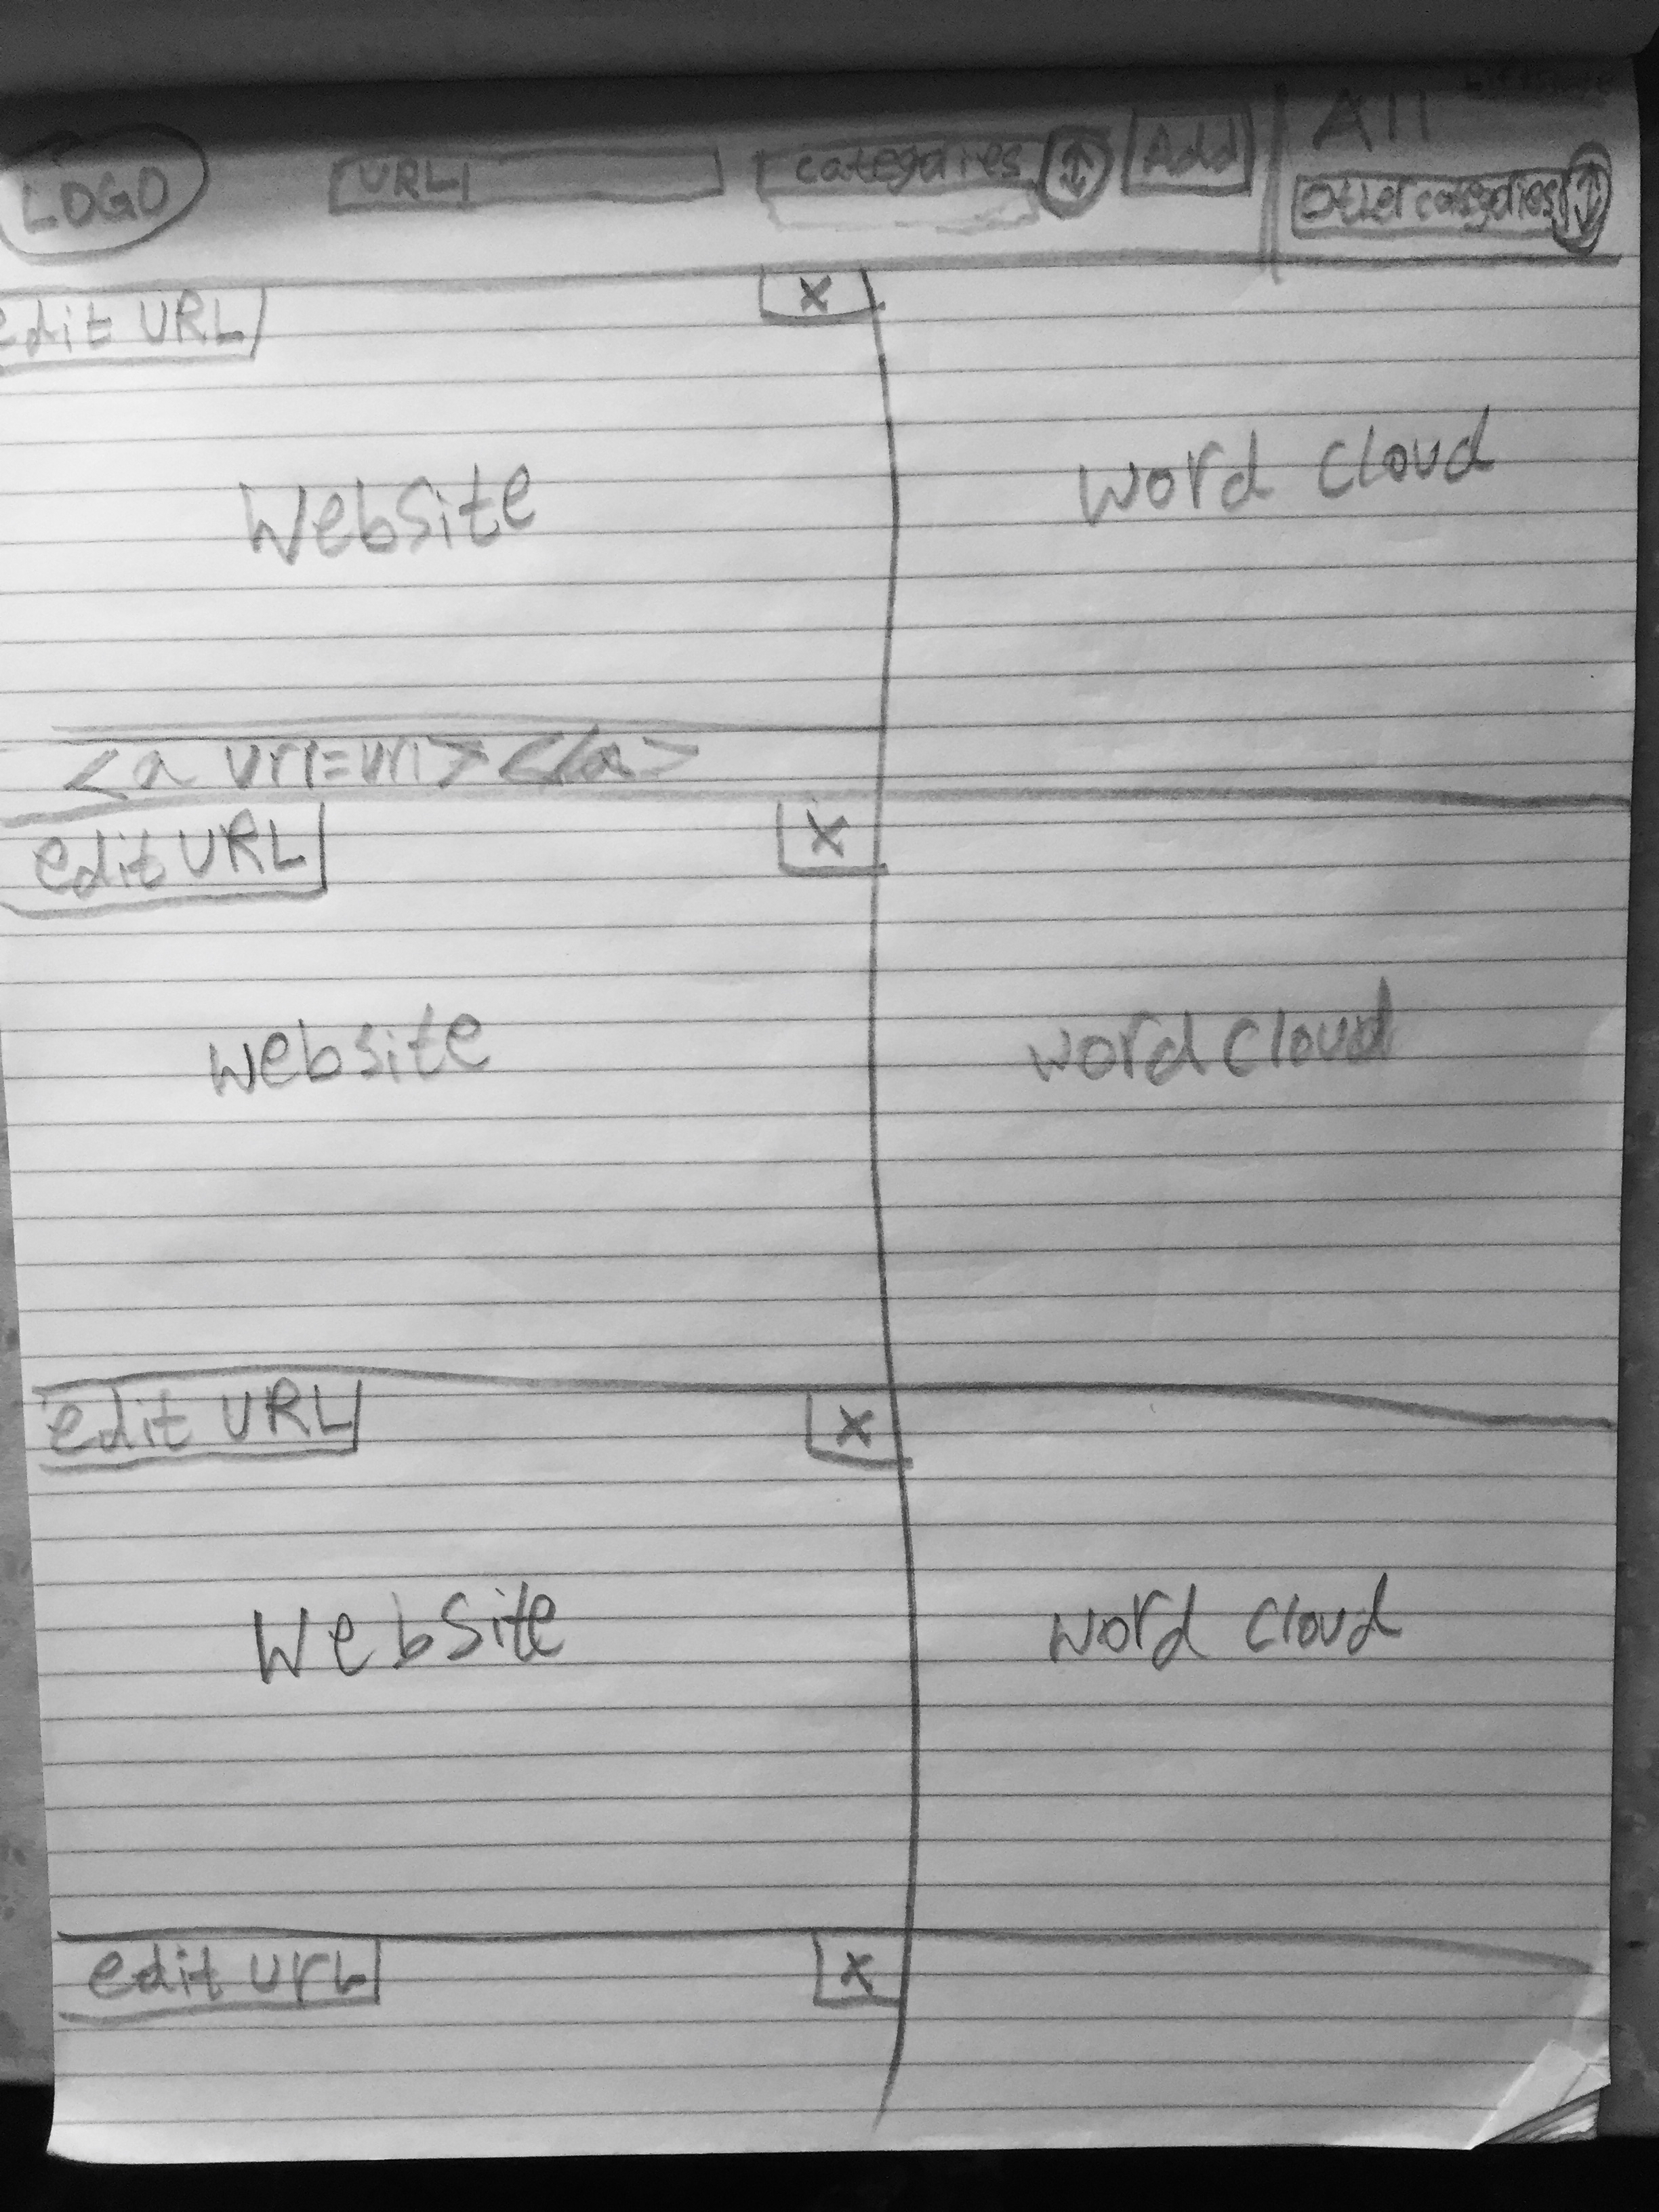 LOGO URL categories ↕ Add All
Other categories ↕
edit URL X
Website word cloud
<a url=url></a>
edit URL X
website word cloud
edit URL X
Website word cloud
edit URL X